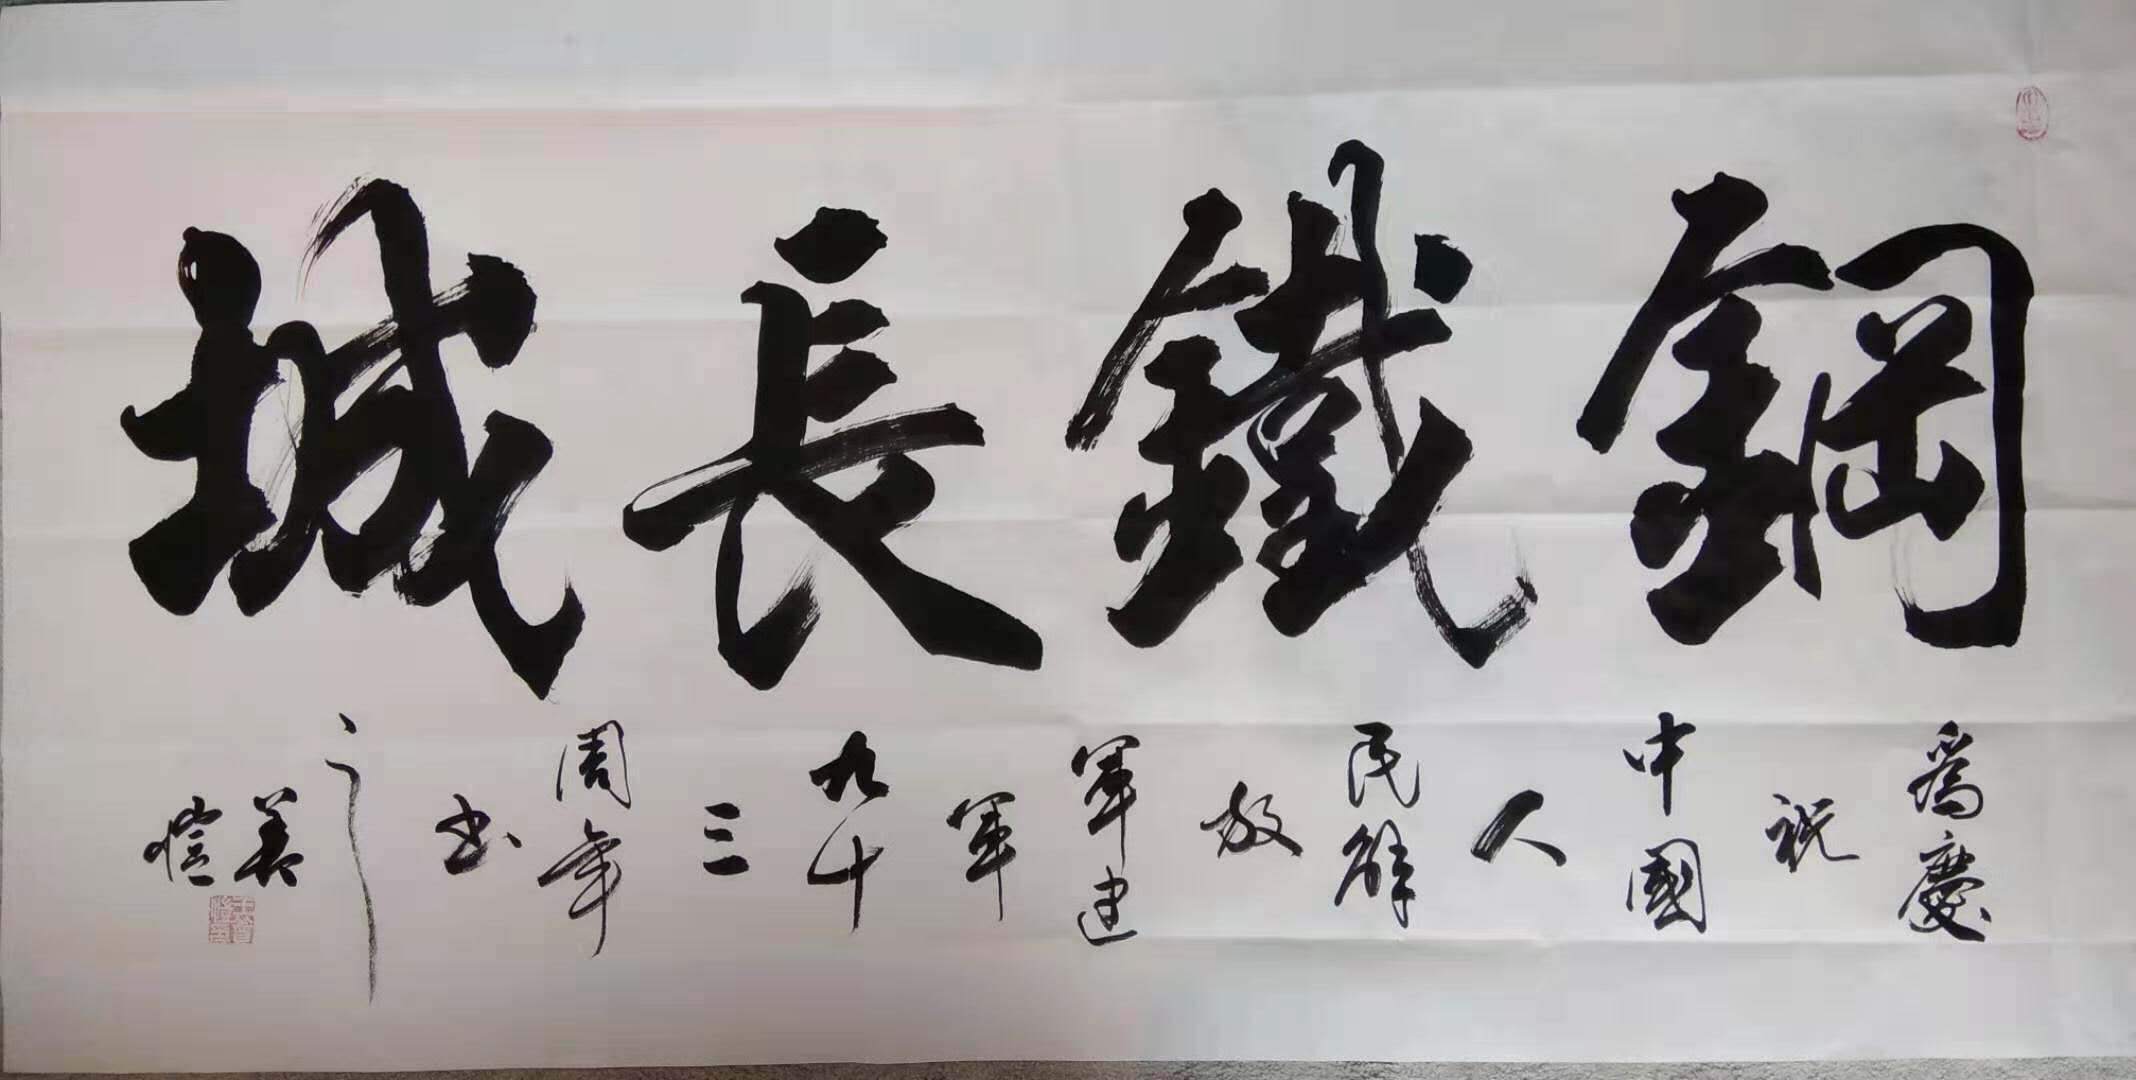 鋼鐵長城
爲慶祝中國人民解放軍建軍九十三周年書之